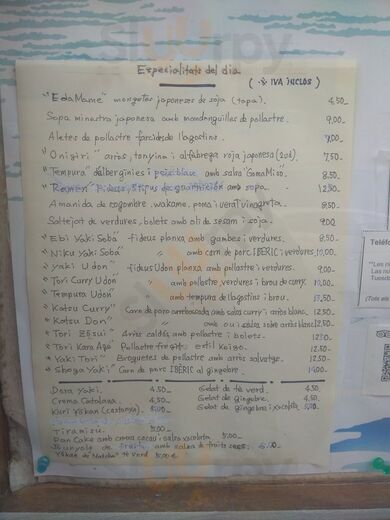 Sluurpy
Especialitats del dia
( * IVA INCLÒS )
"EdaMame" mongetes japoneses de soja (tapa). 4,50_
Sopa minestra japonesa amb mandonguilles de pollastre. 9,00_
Aletes de pollastre farcides de llagostins. 9,00_
"Onigiri" arròs, tonyina i alfàbrega roja japonesa (2ud). 7,50_
"Tempura" d'albergínies i peix blanc amb salsa "Goma Miso". 8,50_
"Ramen" Fideus, amb sopa. 12,50_
Amanida de cogombre, wakame, poma i vera vinagreta. 8,50_
Saltejat de verdures, bolets amb oli de sesam i soja. 9,00
"Ebi Yaki Soba" fideus planxa amb gambes i verdures. 8,50_
"Niku Yaki Soba" " amb carn de porc IBÈRIC i verdures. 10,00_
"Yaki Udon" fideus Udon planxa amb pollastre i verdures. 9,00_
"Tori Curry Udon" " amb pollastre, verdures i brou de curry. 10,00_
"Tempura Udon" " amb tempura de llagostins i brou. 13,50_
"Katsu Curry" Carn de porc arrebossada amb salsa curry i arròs blanc. 12,50_
"Katsu Don" " amb ou i salsa sobre arròs blanc. 12,50_
"Tori Zōsui" Arròs caldós amb pollastre i bolets. 12,50_
"Tori Kara Age" Pollastre fregit estil Kaigo. 12,50_
"Yaki Tori" Broquetes de pollastre amb arròs salvatge. 12,50_
"Shoga Yaki" Carn de porc IBÈRIC al gingebre 14,00_
Dora Yaki. 4,50_ Gelat de té verd. 4,50_
Crema Catalana. 4,50_ Gelat de gingebre. 4,50_
Kuri Yōkan (castanya). 5,00_ Gelat de gingebre i xocolata. 5,00_
Tiramisú. 5,00_
Pan Cake amb crema cacau i salsa xocolata 5,00_
Bunyols de fruita amb salsa de fruits secs. 6,00_
Yōkan de "Matcha" té verd 5,00 €
Telèfo